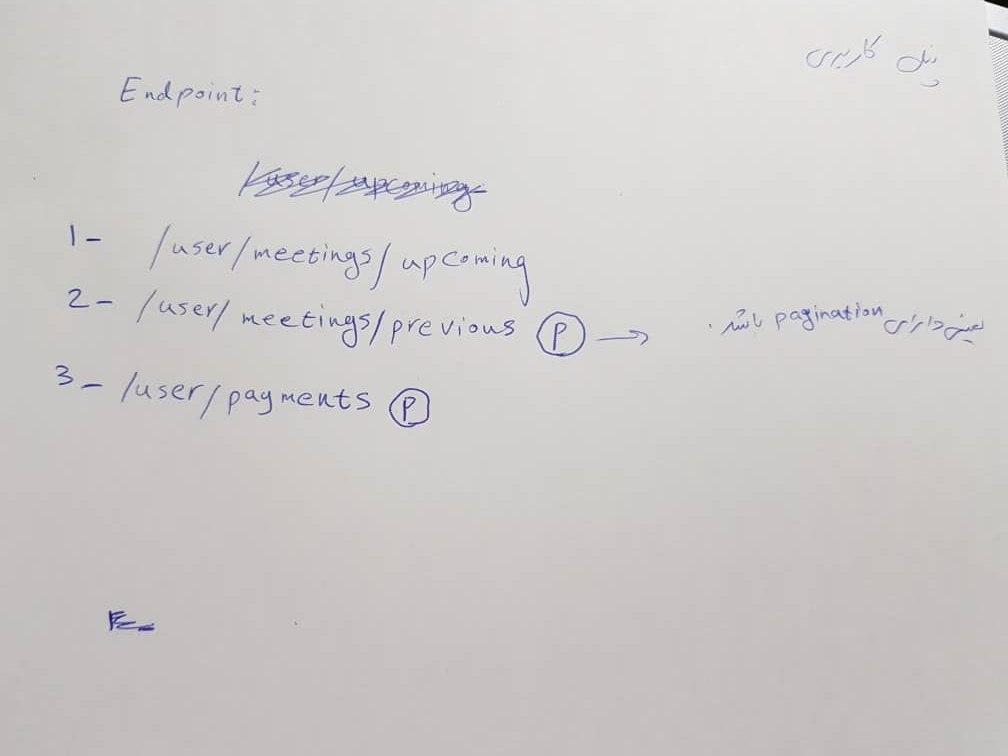 پنل کاربری
Endpoint:
/user/upcoming
1- /user/meetings/upcoming
2- /user/meetings/previous Ⓟ → یعنی دارای pagination باشد.
3- /user/payments Ⓟ